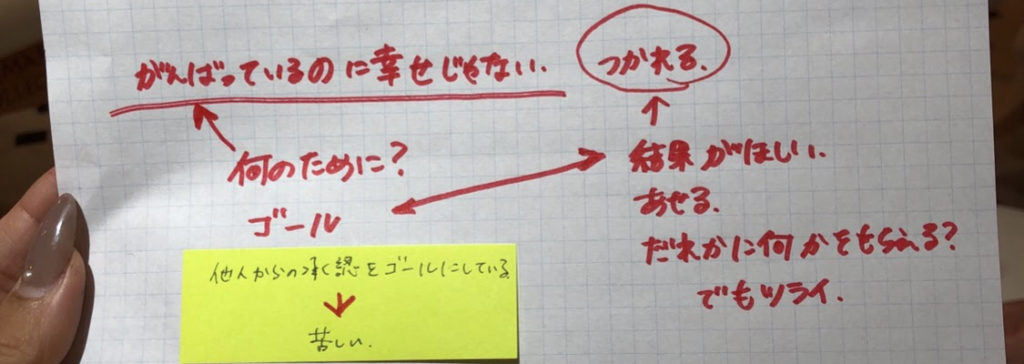 がんばっているのに幸せじゃない.
つかれる.
何のために?
ゴール
結果がほしい.
あせる.
だれかに何かをもらえる?
でもツライ.
他人からの承認をゴールにしている
苦しい.